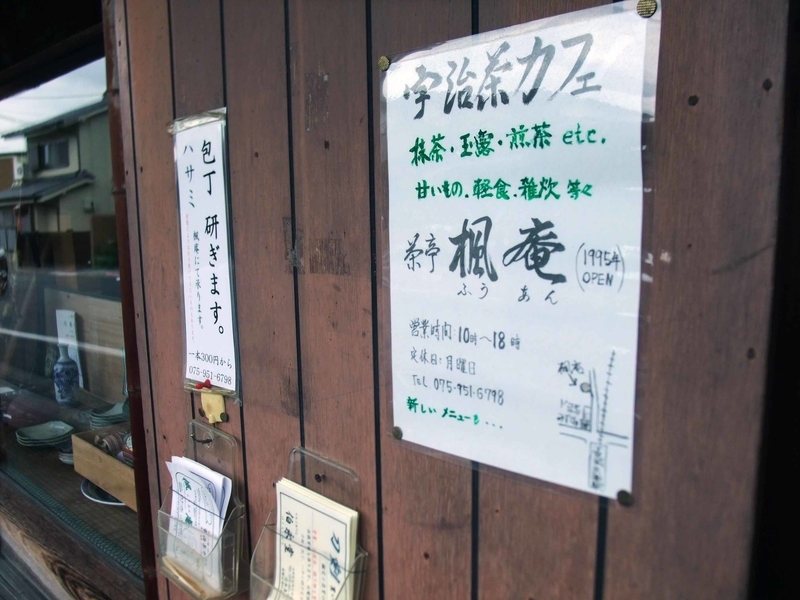 包丁 研ぎます。
ハサミ
楓庵にて承ります。
一本300円から
075-951-6798
宇治茶カフェ
抹茶・玉露・煎茶 etc.
甘いもの.軽食.雑炊 等々
茶亭 楓庵 (1995年 OPEN)
ふう あん
営業時間:10時〜18時
定休日:月曜日
TEL 075-951-6798
新しいメニューも...
楓庵